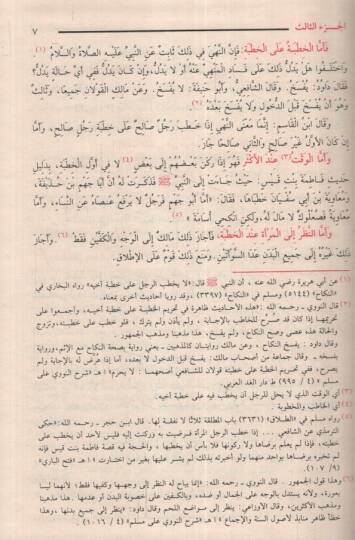 الجزء الثالث ٧
فأما الخطبة على الخطبة: فإن النهي في ذلك ثابت عن النبي عليه الصلاة والسلام (١)
واختلفوا هل يدل ذلك على فساد المنهي عنه أو لا يدل، وإن كان يدل ففي أي حالة يدل؟
فقال داود: يفسخ. وقال الشافعي وأبو حنيفة: لا يفسخ. وعن مالك القولان جميعاً، وثالث
وهو أن يفسخ قبل الدخول ولا يفسخ بعده
وقال ابن القاسم: إنما معنى النهي إذا خطب رجل صالح على خطبة رجل صالح، وأما
إن كان الأول غير صالح والثاني صالحاً جاز.
وأما الوقت (٣) عند الأكثر فهو إذا ركن بعضهم إلى بعض (٤) لا في أول الخطبة، بدليل
حديث فاطمة بنت قيس، حيث جاءت إلى النبي ﷺ فذكرت له أن أبا جهم بن حذيفة،
ومعاوية بن أبي سفيان خطباها، فقال: «أما أبو جهم فرجل لا يرفع عصاه عن النساء، وأما
معاوية فصعلوك لا مال له، ولكن انكحي أسامة» (٥)
وأما النظر إلى المرأة عند الخطبة، فأجاز ذلك مالك إلى الوجه والكفين فقط (٦). وأجاز
ذلك غيره إلى جميع البدن عدا السوأتين. ومنع ذلك قوم على الإطلاق.
(١) عن أبي هريرة رضي الله عنه، أن النبي ﷺ قال: «لا يخطب الرجل على خطبة أخيه» رواه البخاري في
«النكاح» (٥١٤٤) ومسلم في «النكاح» (٣٣٩٧)، وقد رويا أحاديث أخرى بمعناه.
(٢) قال النووي - رحمه الله: «هذه الأحاديث ظاهرة في تحريم الخطبة على خطبة أخيه، وأجمعوا على
تحريمها إذا كان قد صرح للخاطب بالإجابة، ولم يأذن ولم يترك، فلو خطب على خطبته، وتزوج
والحالة هذه عصى وصح النكاح، ولم يفسخ، هذا مذهبنا ومذهب الجمهور.
وقال داود: يفسخ النكاح، وعن مالك روايتان كالمذهبين
وقال جماعة من أصحاب مالك: يفسخ قبل الدخول لا بعده، أما إذا عرض له بالإجابة ولم
يصرح، ففي تحريم الخطبة على خطبته قولان للشافعي أصحهما: لا يحرم» اهـ «شرح النووي على
مسلم» (٤ / ٩٩٥) ط دار الغد العربي.
(٣) أي الوقت الذي لا يحل للرجل أن يخطب فيه على خطبة أخيه.
(٤) أي الخاطب والمخطوبة.
(٥) رواه مسلم في «الطلاق» (٣٦٣١) باب المطلقة ثلاثًا لا نفقة لها. قال ابن حجر - رحمه الله: «حكى
الترمذي عن الشافعي إذا خطب الرجل المرأة فرضيت به وركنت إليه فليس لأحد أن يخطب على
خطبته، فإذا لم يعلم برضاها ولا ركونها فلا بأس أن يخطبها، والحجة فيه قصة فاطمة بنت قيس فإنه
لم تخبره برضاها بواحد منهما ولو أخبرته بذلك لم يشر عليها بغير من اختارت» اهـ «فتح الباري»
(٩ / ١٠٧).
(٦) وهذا قول الجمهور. قال النووي - رحمه الله: «إنما يباح له النظر إلى وجهها وكفيها فقط؛ لأنهما ليسا
بعورة، ولأنه يستدل بالوجه على الجمال أو ضده، وبالكفين على خصوبة البدن أو عدمها. هذا مذهبنا
ومذهب الأكثرين، وقال الأوزاعي: ينظر إلى مواضع اللحم وقال داود: «ينظر إلى جميع بدنها، وهذا
خطأ ظاهر منابذ لأصول السنة والإجماع» اهـ «شرح النووي على مسلم» (٤ / ١٠١٦).